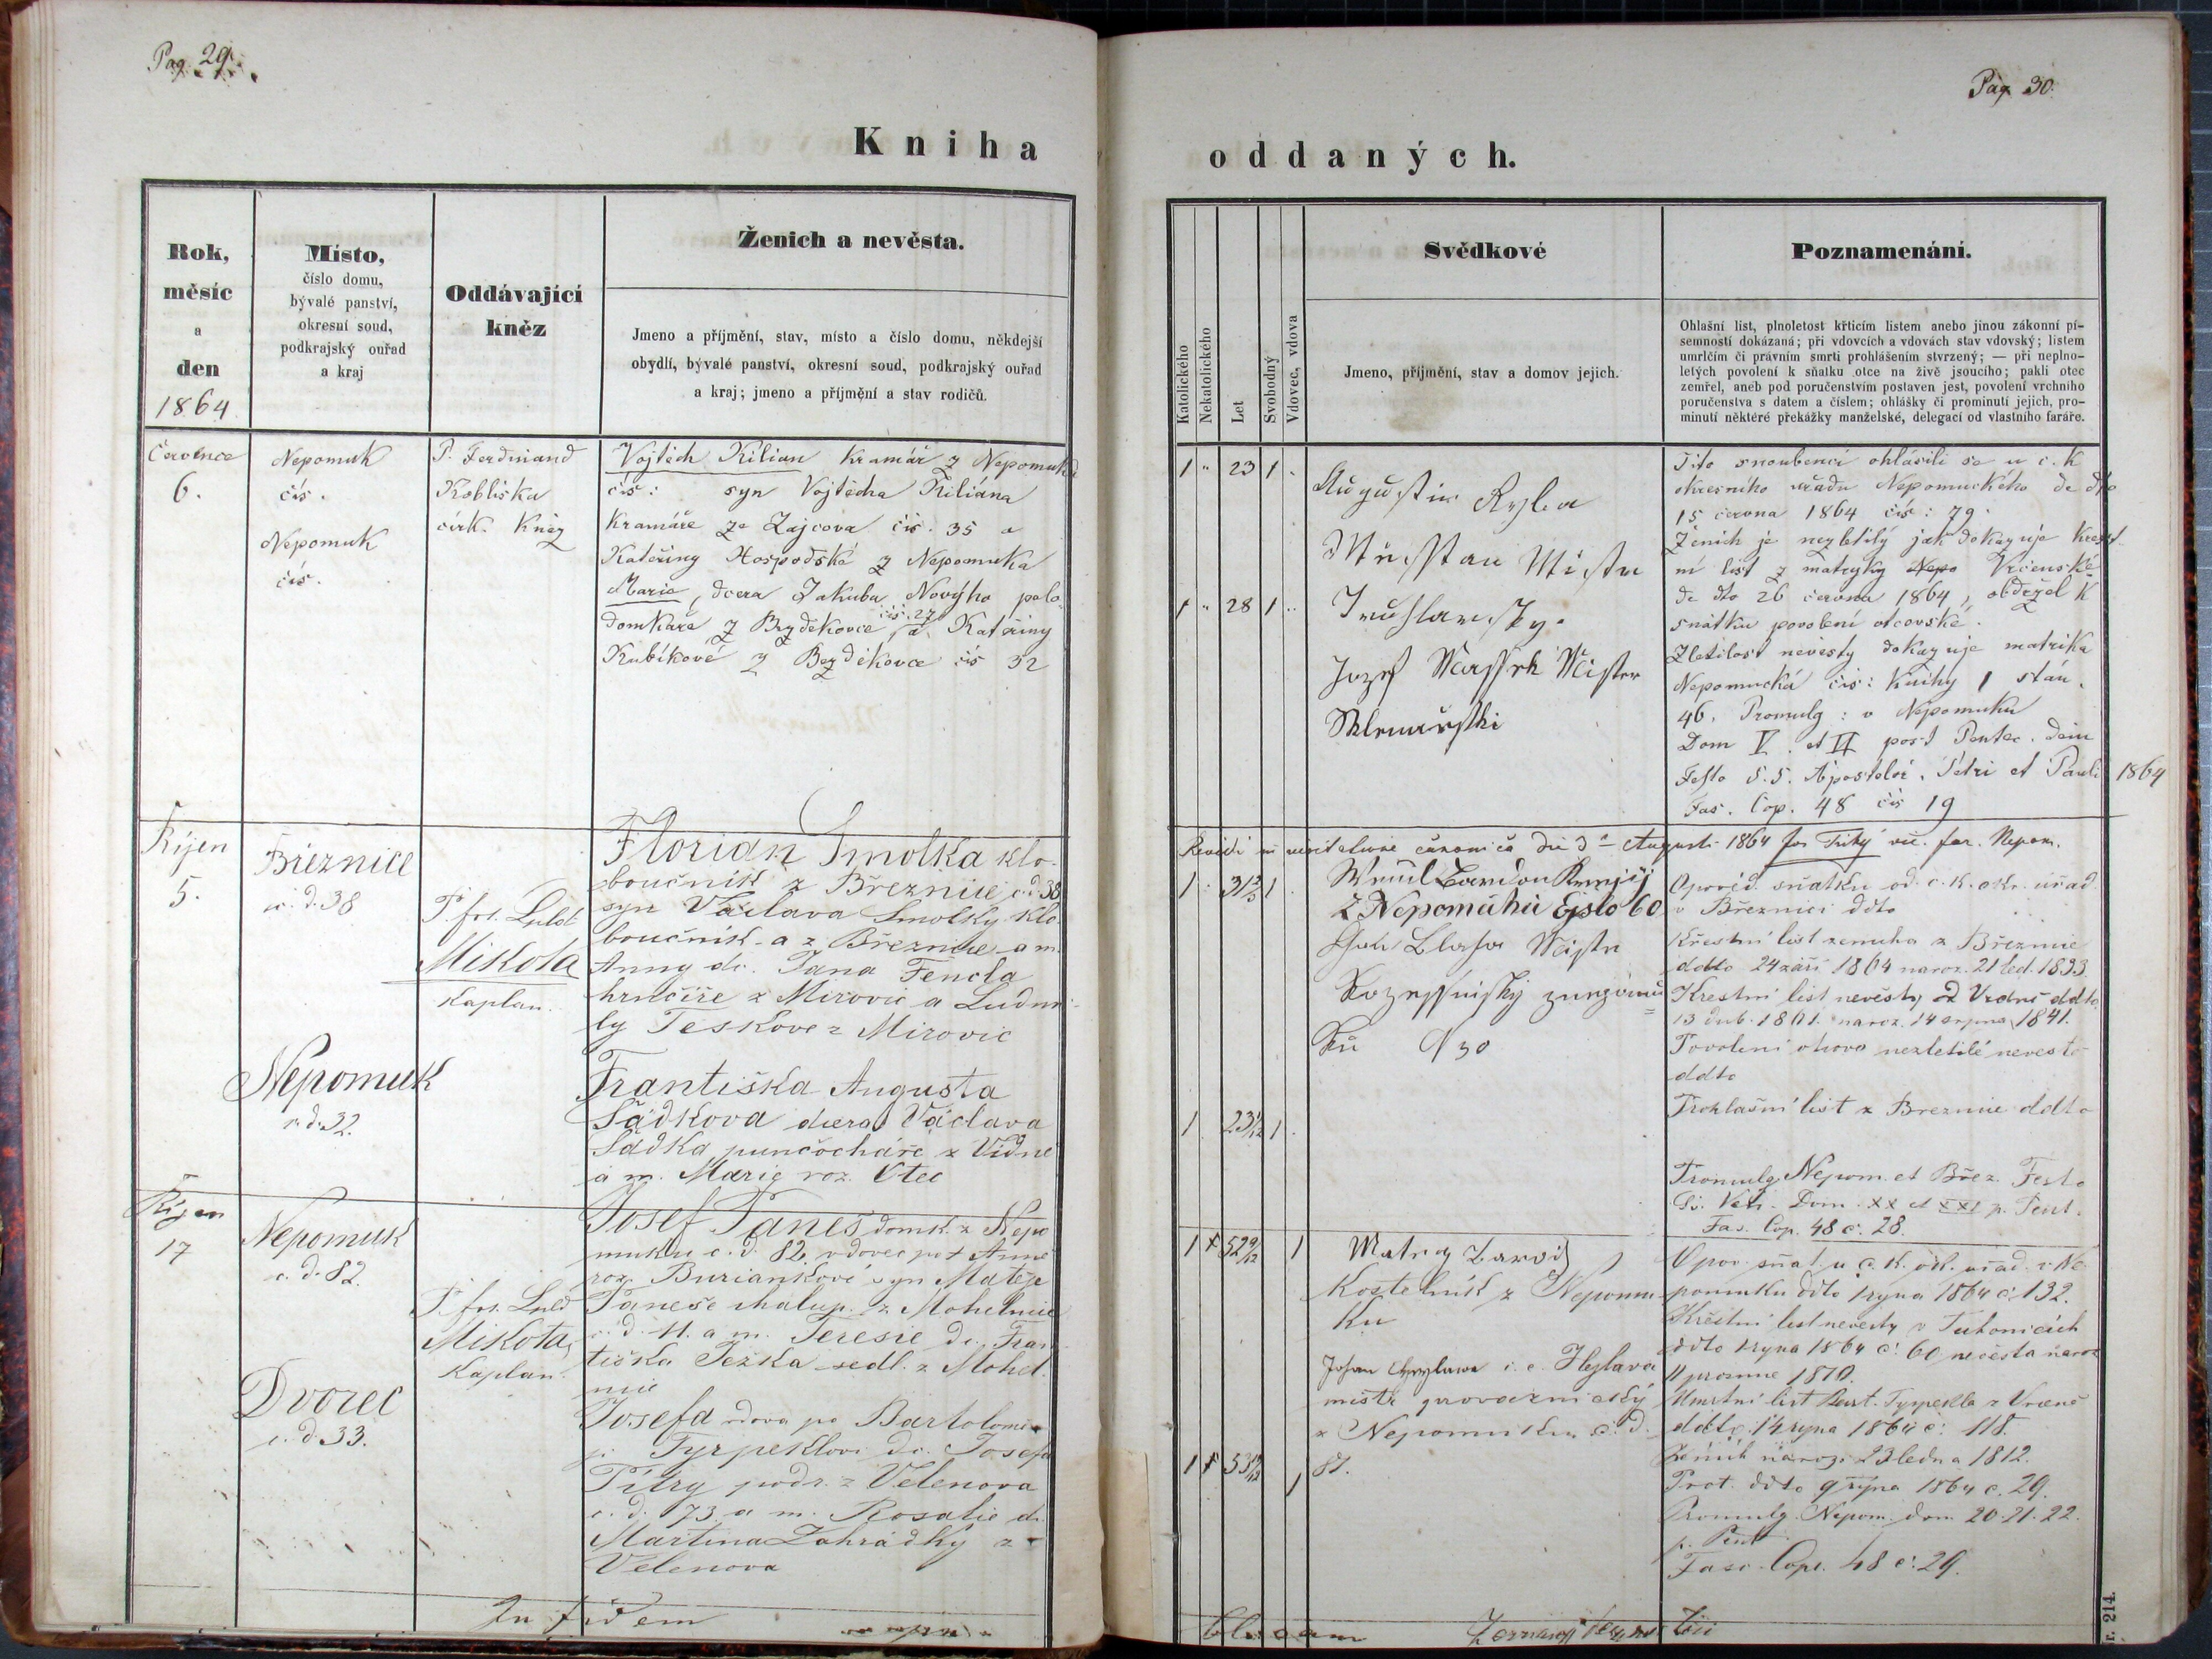 Pag. 29.
Kniha
Rok,
měsíc
a
den
1864
Místo,
číslo domu,
bývalé panství,
okresní soud,
podkrajský ouřad
a kraj
Oddávající
kněz
Ženich a nevěsta.
Jmeno a příjmění, stav, místo a číslo domu, někdejší
obydlí, bývalé panství, okresní soud, podkrajský ouřad
a kraj; jmeno a příjmění a stav rodičů.
Července
6.
Nepomuk
čís.
Nepomuk
čís.
P. Ferdinand
Kobliska
círk. Kněz
Vojtěch Kilian kramář z Nepomuku
čís: syn Vojtěcha Kiliána
kramáře ze Zajcova čís. 35 a
Kateřiny Hospodské z Nepomuka
Marie, dcera Jakuba Novýho polo-
domkaře z Bezdekovce čís. 27 a Kateřiny
Kubíkové z Bezděkovce čís 32
Říjen
5.
Březnice
č. d. 38
Nepomuk
č. d. 32.
P. frt.
Mikota
Kaplan.
Florian Smolka klo-
boučník z Březnice č. d. 38
syn Václava Smolky klo
boučník-a z Březnice a m.
Anny dc. Jana Fencla
hrnčíře z Mirovic a Ludmi-
ly Teskove z Mirovic
Františka Augusta
Sádkova dcera Václava
Sádka punčocháře z Vídně
a m. Marie roz. Otec
Říjen
17
Nepomuk
č. d. 82.
Dvorec
č. d. 33.
P. frt.
Mikota,
Kaplan.
Josef Janeš domk. z Nepo
muku č. d. 82, vdovec po † Anně
roz. Buriankové syn Matěje
Janeše chalup. z Mohelnice
č. d. 11. a m. Teresie dc. Fran-
tiška Ježka sedl. z Mohel.
nice
Josefa vdova po Bartoloměj
Tyrpeklovi dc. Josefa
Pitry podr. z Velenova
č. d. 73 a m. Rosalie dc.
Martina Zahrádky z
Velenova
Pag. 30.
oddaných.
Katolického
Nekatolického
Let
Svobodný
Vdovec, vdova
Svědkové
Jmeno, příjmění, stav a domov jejich.
Poznamenání.
Ohlašní list, plnoletost křticím listem anebo jinou zákonní pí-
semností dokázaná; při vdovcích a vdovách stav vdovský; listem
umrlčím či právním smrti prohlášením stvrzený; — při neplno-
letých povolení k sňatku otce na živě jsoucího; pakli otec
zemřel, aneb pod poručenstvím postaven jest, povolení vrchního
poručenstva s datem a číslem; ohlášky či prominutí jejich, pro-
minutí některé překážky manželské, delegací od vlastního faráře.
1 " 23 1
1 " 28 1
Augustin Ryba
Měsstan Mistr
Truhlarsky.
Jozef Massek Mister
Sklenařski
Tito snoubenci ohlásili se u c. k
okresního uřadu Nepomuckého de dto
15 června 1864 čís: 79.
Ženich je nezletilý jak dokazuje křest-
ní list z matryky Nepo Vrčenské
de dto 26 června 1864, obdržel k
snátku povolení otcovské.
Zletilost nevěsty dokazuje matrika
Nepomucká čís: knihy 1 stán.
46. Promulg: v Nepomuku
Dom V. et VI post Pentec. dein
Festo S. S. Apostolor. Petri et Pauli 1864
Fas. Cop. 48 čís 19
canonica die 3 Augusti 1864 Jos. vic. far. Nepom.
1 31 1
Z Nepomuku Čjslo 60
Mistr
N 30
Opověd. sňatku od. c. k. okr. úřad.
v Březnici ddto
Křestní list ženicha z Březnice
ddto 24 září 1864 naroz. 21 led. 1833.
Křestní list nevěsty od Vídně ddto
13 dub. 1861. naroz. 14 srpna 1841.
Povolení otcovo nezletilé nevěstě
ddto
Prohlašní list z Breznice ddto
1 23 1
Promulg Nepom. et Břez. Festo
Dom. XX et XXI p. Pent.
Fas. Cop. 48 č. 28.
1 52 1
Kostelník z Nepomu-
ku
Johan i. e. Heylava
mistr provaznický
z Nepomuku č. d.
81.
Opov. sňat. u c. k. ok. uřad. v Ne
pomuku ddto 1 ryna 1864 č. 132.
Křestní list nevěsty
ddto 1 ryna 1864 č. 60 nevěsta naroz
11 prosince 1810.
Umrtní list Bart. Tyrpekla z Vrčeně
ddto 14 ryna 1864 č. 118.
Ženich naroz. 23 ledna 1812.
Prot. ddto 9 října 1864 č. 29.
Promulg. Nepom. dom. 20. 21. 22.
p. Pent
Fasc. Cop. 48 č. 29.
1 53 1
r. 214.